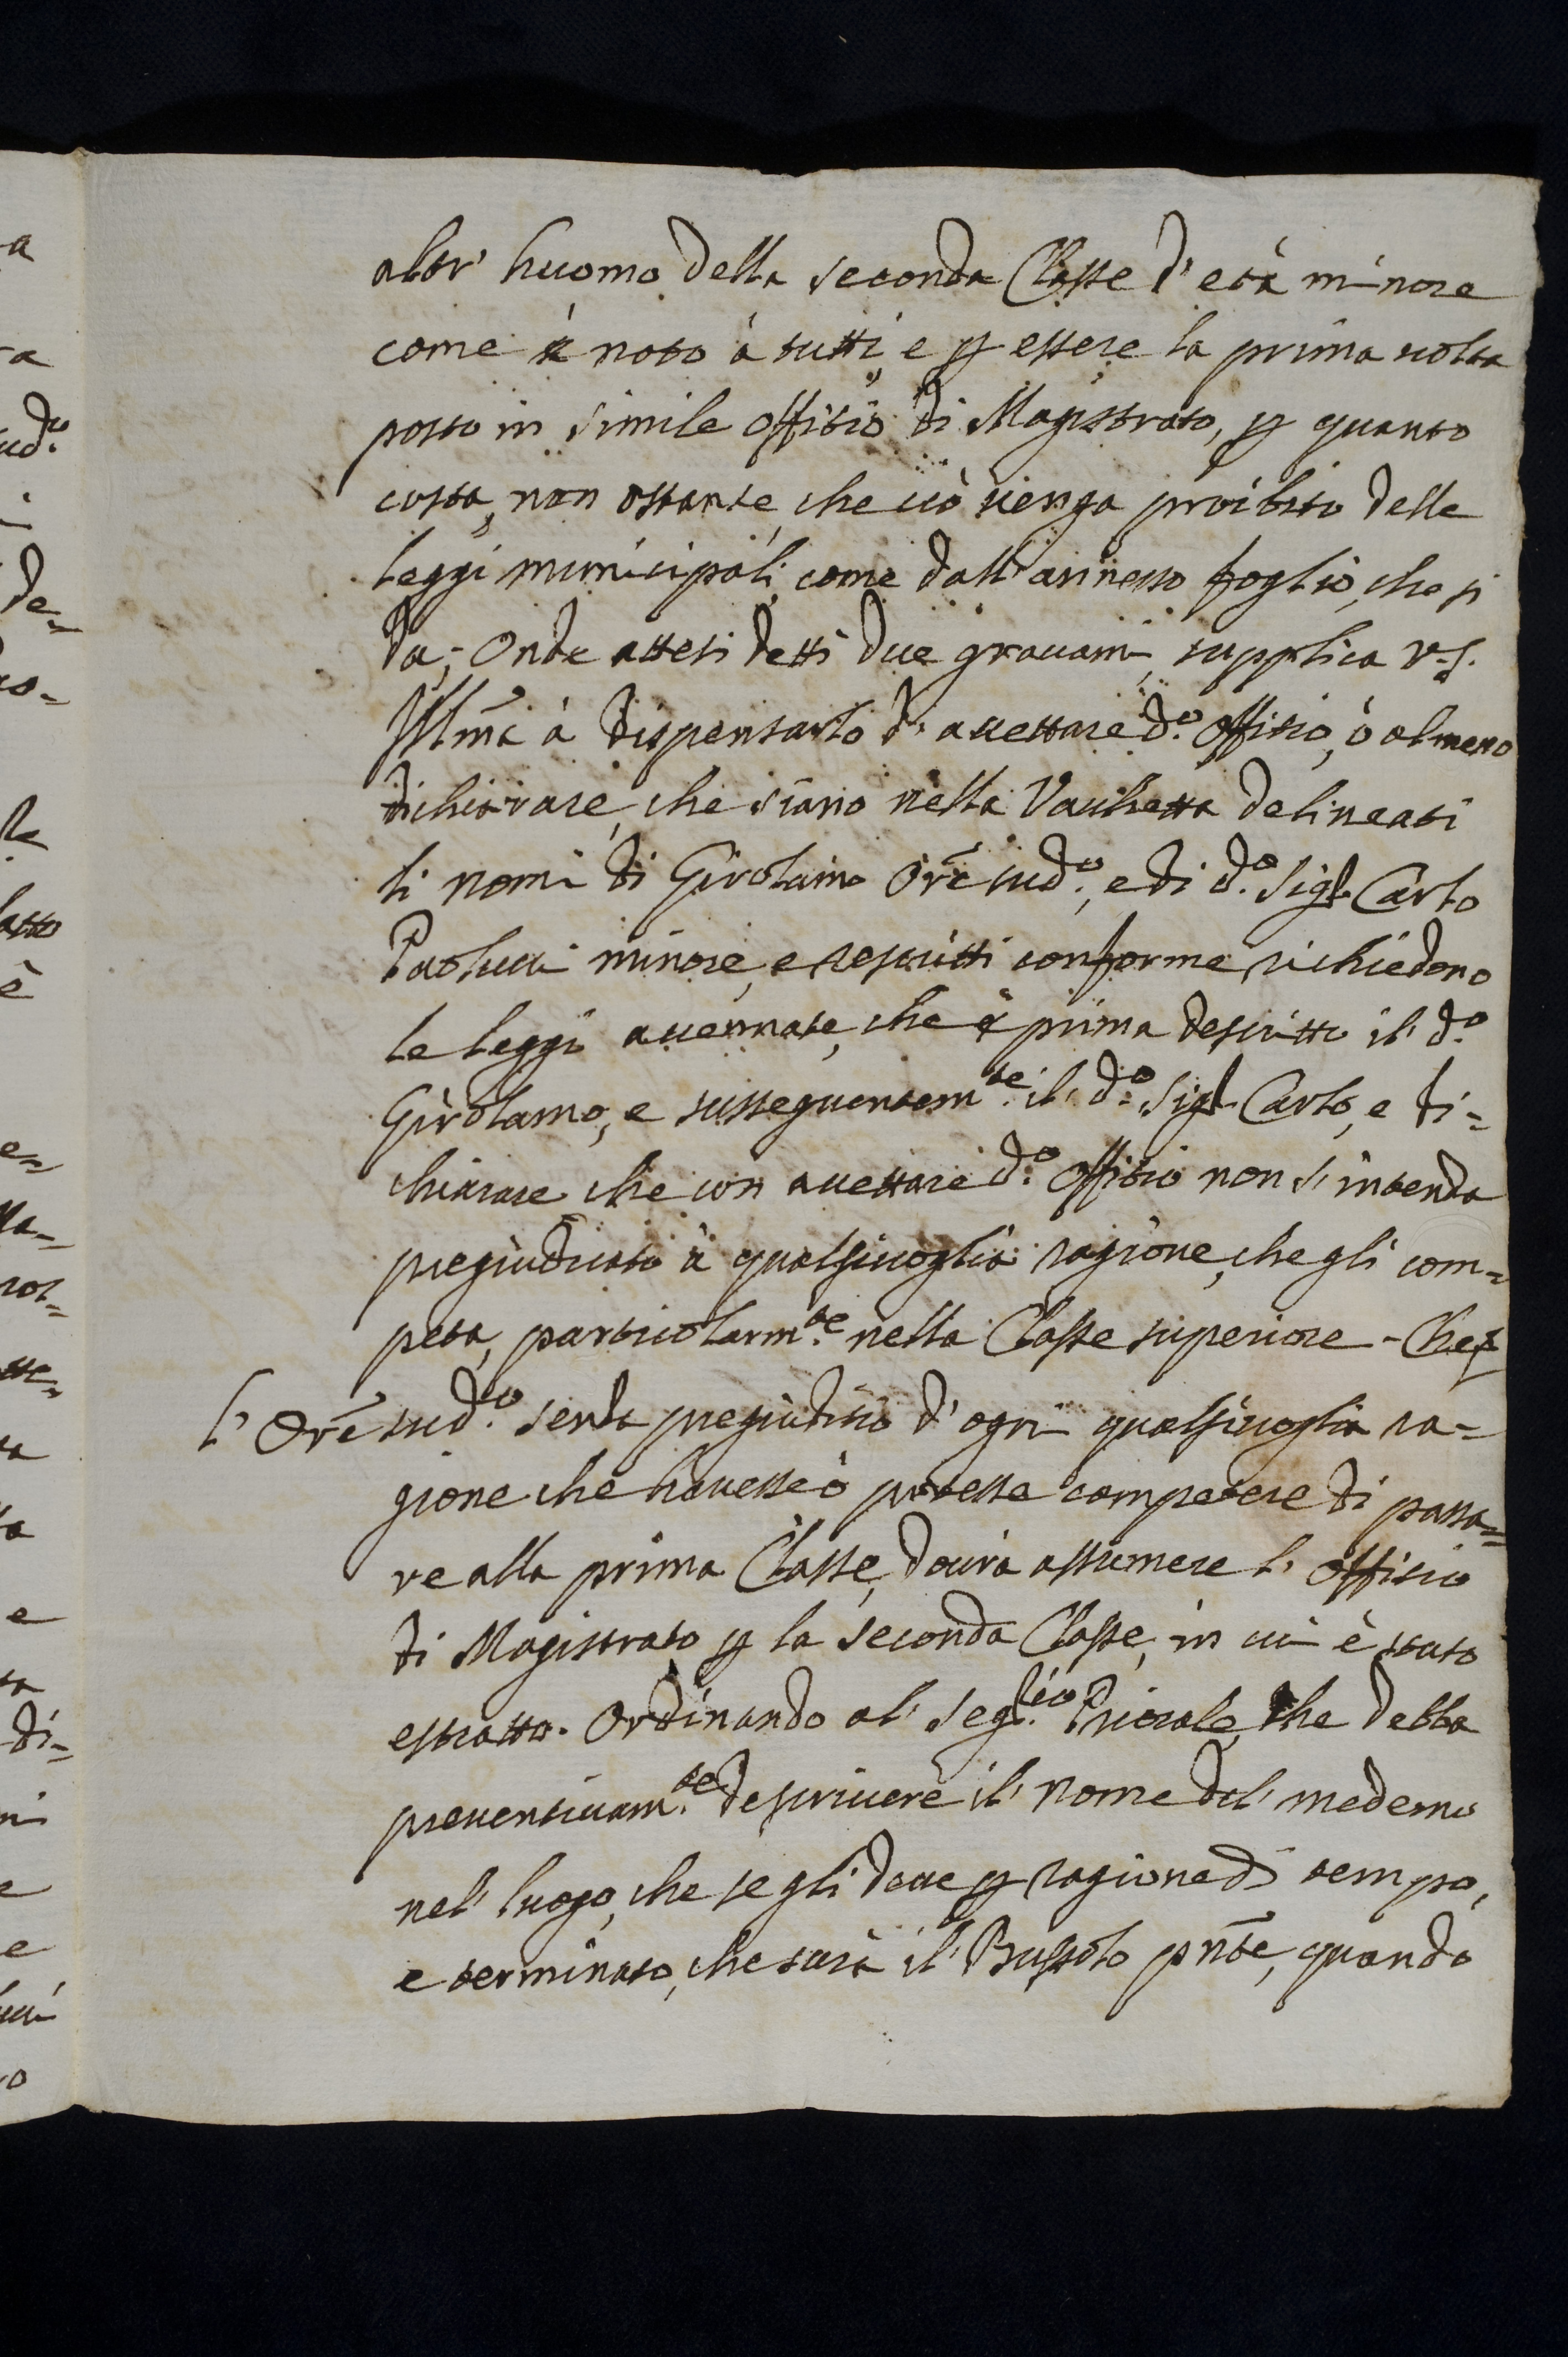 altr' huomo della seconda Classe d'età minore
come è noto à tutti, e p essere la prima uolta
posto in simile offitio di Magistrato, p quanto
costa, non ostante, che ciò uenga proibito delle
leggi municipali, come dall'annesso foglio, che si
da; Onde attesi detti due grauami, supplica V.S.
Ill̃ma à dispensarlo d'accettare d.o offitio, ò almeno
dichiarare, che siano nella Vacchetta delineati
li nomi di Girolamo Or̃e sud.o, e di d.o Sig.r Carlo
Paolucci minore, e rescritti conforme richiedono
le leggi accennate, che è prima descritto il d.o
Girolamo, e susseguentem.te il d.o Sig.r Carlo, e di=
chiarare che con accettare d.o offitio non s'intenda
pregiudicato à qualsiuoglia ragione, che gli com=
peta, particolarm.te nella Classe superiore - Che
l'Or̃e sud.o senza pregiuditio d'ogni qualsiuoglia ra=
gione che hauesse ò potesse competere di passa=
re alla prima Classe, dourà assumere l'offitio
di Magistrato p la seconda Classe, in cui è stato
estratto. Ordinando al Seg.rio Priorale, che debba
preuentiuam.te descriuere il nome del medemo
nel luogo, che se gli deue p ragione di tempo,
e terminato, che sarà il Bussolo pñte, quando